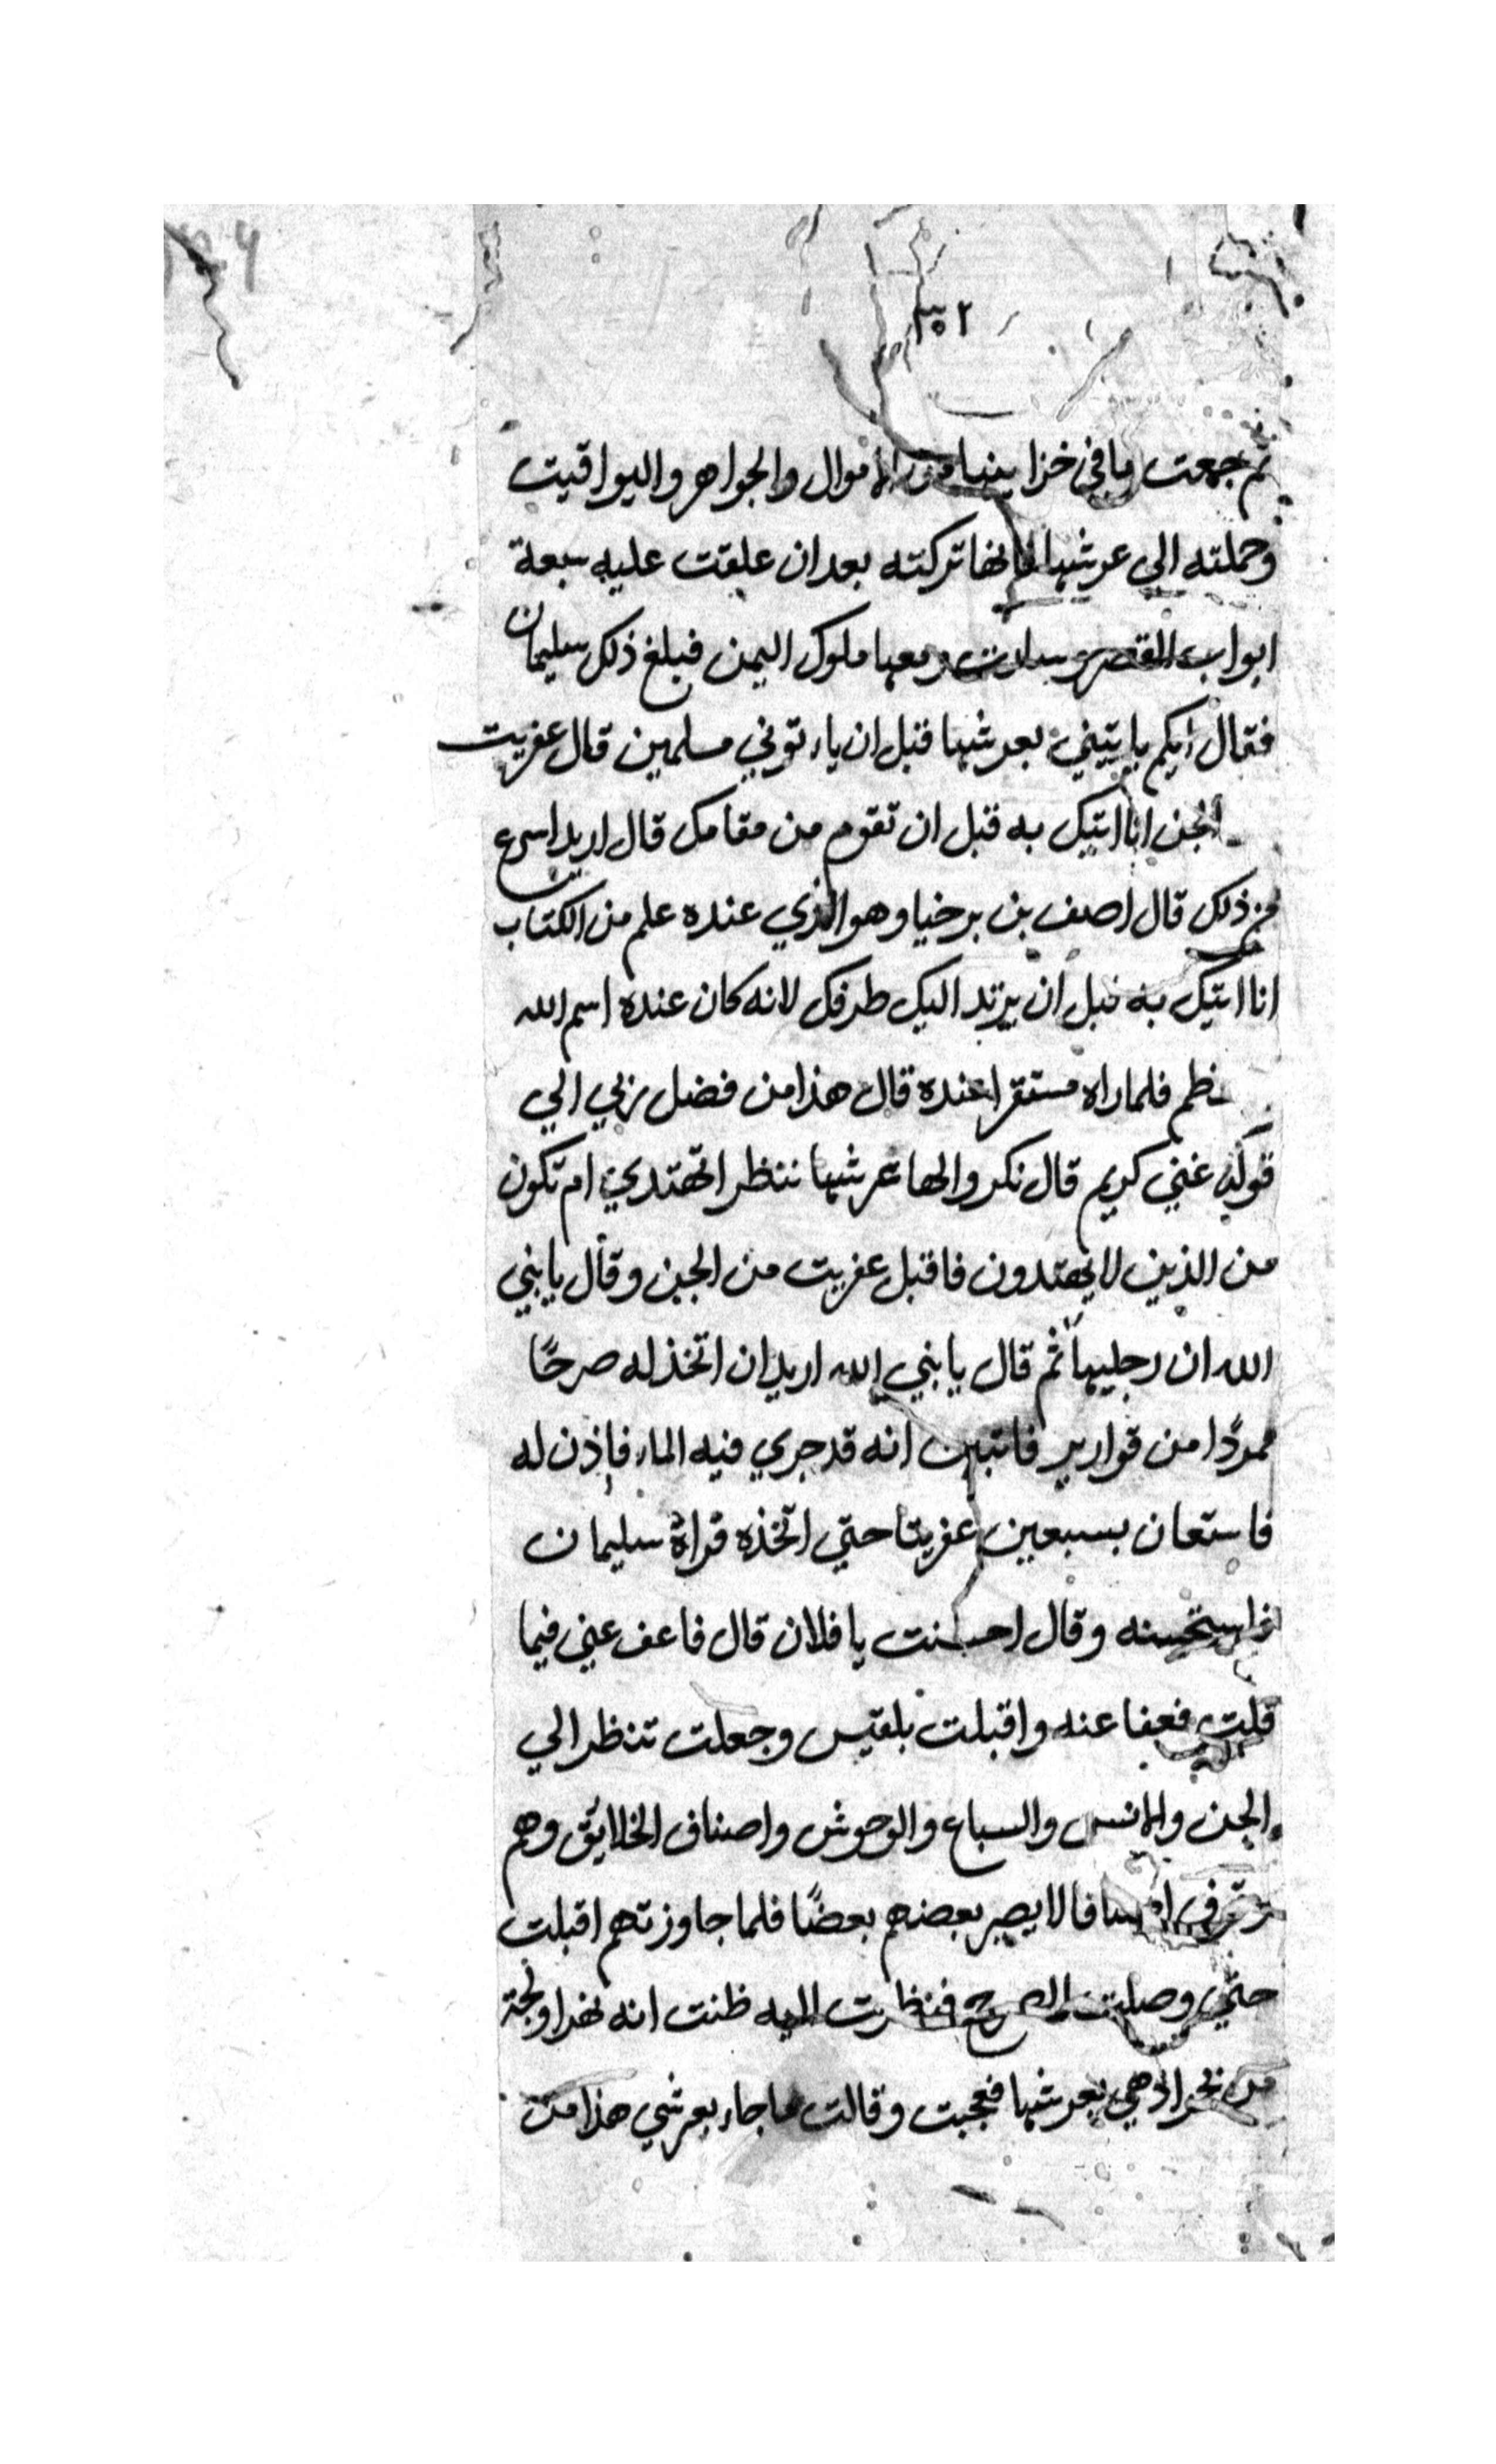 ٣٥٢
ثم جمعت ما في خزاينها من الاموال والجواهر واليواقيت
وحملته الي عرشها فانها تركته بعد ان علقت عليه سبعة
ابواب القصر وسارت ومعها ملوك اليمن فبلغ ذلك سليمان
فقال ايكم ياتيني بعرشها قبل ان ياءتوني مسلمين قال عفريت
الجن انا اتيك به قبل ان تقوم من مقامك قال اريد اسرع
من ذلك قال اصف بن برخيا وهو الذي عنده علم من الكتاب
انا اتيك به قبل ان يرتد اليك طرفك لانه كان عنده اسم الله
فلما راه مستقرا عنده قال هذا من فضل ربي الي
قوله غني كريم قال نكروا لها عرشها ننظر اتهتدي ام تكون
من الذين لا يهتدون فاقبل عفريت من الجن وقال يا بني
الله ان رجليها ثم قال يا بني الله اريد ان اتخذ له صرحًا
ممردًا من قوارير انه قد جري فيه الماء فاذن له
فاستعان بسبعين عفريتا حتي اتخذه فراه سليمان
فاستحسنه وقال احسنت يا فلان قال فاعف عني فيما
قلت فعفا عنه واقبلت بلقيس وجعلت تنظر الي
الجن والانس والسباع والوحوش واصناف الخلايق وهم
لا يصير بعضهم بعضًا فلما جاوزتهم اقبلت
حتي وصلت الصرح فنظرت اليه ظنت انه نهرا ولجة
من بحر اذ هي بعرشها فعجبت وقالت ما جاء بعرشي هذا من